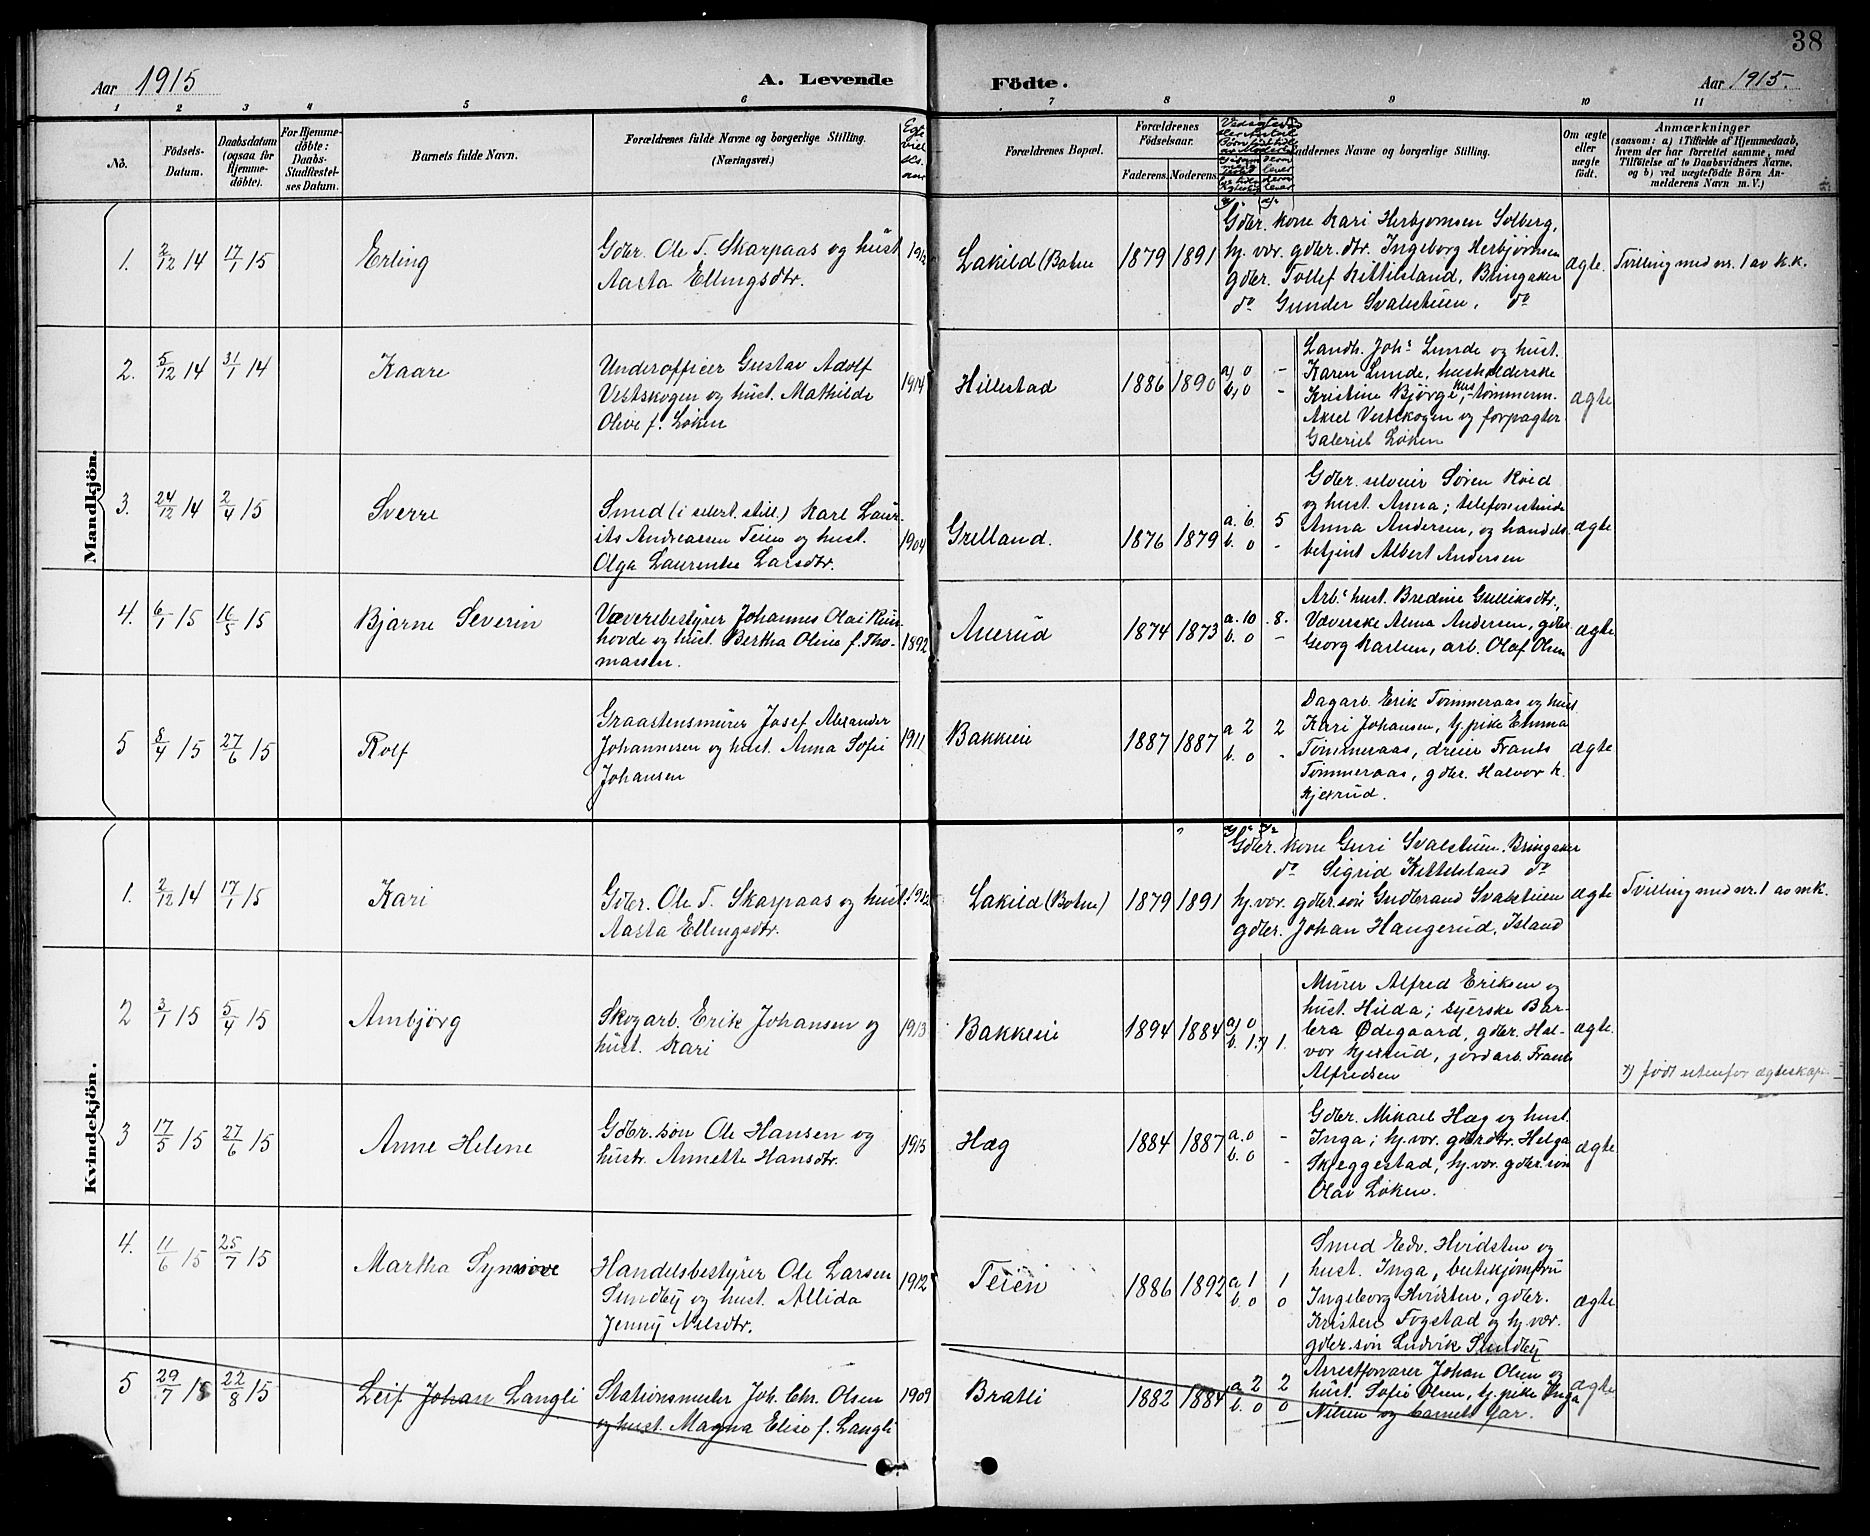 38
Aar 1915
A. Levende
Födte.
Aar 1915.
1 2 3 4 5 6 7 8 9 10 11
No.
Födsels-
Datum.
Daabsdatum
(ogsaa for
Hjemme-
döbte).
For Hjemme-
döbte:
Daabs-
Stadfæstel-
ses Datum.
Barnets fulde Navn.
Forældrenes fulde Navne og borgerlige Stilling.
(Næringsvei.)
Forældrenes Bopæl.
Forældrenes
Födselsaar.
Faderens. Moderens.
Faddernes Navne og borgerlige Stilling.
Om ægte
eller
uægte
födt.
Anmærkninger
(saasom: a) i Tilfælde af Hjemmedaab,
hvem der har forrettet samme, med
Tilföielse af to Daabsvidners Navne,
og b) ved uægtefödte Börn An-
melderens Navn m. V.)
Mandkjön.
1. 2/12 14 17/1 15 Erling
Gdbr. Ole T. Skarpaas og hust.
Aasta Ellingsdtr.
1912
Lakild (Botne
1879 1891
Gdbr. kone Kari Herbjørnsen Solberg,
hj. vær. gdbr. dtr. Ingeborg Herbjørnsen
gdbr. Tollef Kittilsland, Bringaker
do Gunder Svalstuen, do
ægte.
Tvilling med nr. 1 av k.k.
2. 5/12 14 31/1 14 Kaare
Underofficer Gustav Adolf
Vestskogen og hust. Mathilde
Olive f. Løken
1914
Hillestad
1886 1890
a) 0 -
b) 0 -
Landh. Johs Lunde og hust.
Karen Lunde, husholderske
Kristine Bjørge, hus-tømmerm.
Aksel Vestskogen og forpagter
Gabriel Løken
ægte
3. 24/12 14 2/4 15 Sverre
Smed (i selvst. still.) Karl Laur-
its Andreassen Teien og hust.
Olga Laurentse Larsdtr.
1904
Grelland.
1876 1879
a. 6 5
b. 0 -
Gdbr. selveier Søren Roed
og hust. Anna; telefonistinde
Anna Andersen, og handels-
betjent Albert Andersen
ægte
4. 6/1 15 16/5 15 Bjarne Severin
Væveribestyrer Johannes Olai Run-
hovde og hust. Bertha Oline f. Tho-
massen.
1892
Auerud
1874 1873
a. 10 8.
b. 0 -
Arb.s hust. Bredine Gulliksdtr.,
Væverske Alma Andersen, gdbr.
Georg Karlsen, arb. Olaf Olsen
ægte
5 8/4 15 27/6 15 Rolf
Graastensmurer Josef Alexander
Johannesen og hust. Anna Sofie
Johansen
1911
Bakkeni
1887 1887
a 2 2
b. 0 -
Dagarb. Erik Tømmeraas og hust.
Kari Johansen, tj. pike Emma
Tømmeraas, dreier Frants
Tømmeraas, gdbr. Halvor K.
Kjexrud.
ægte
Kvindekjön.
1. 2/12 14 17/1 15 Kari
Gdbr. Ole T. Skarpaas og hust.
Aasta Ellingsdtr.
1912
Lakild (Botne)
1879 1891
Gdbr. kone Guri Svalstuen, Bringaker
do Sigrid Kittelsland do
hj. vær. gdbr. søn Gudbrand Svalstuen
gdbr. Johan Haugerud, Island
ægte
Tvilling med nr. 1 av mk.
2 3/1 15 5/4 15 Ambjørg
Skogarb. Erik Johansen og
hust. Kari
1913
Bakkeni
1894 1884
a) 0
b. 1 x) 1.
Murer Alfred Eriksen og
hust. Hilda; syerske Bar-
bra Ødegaard, gdbr. Hal-
vor Kjexrud, jordarb. Frants
Alfredsen
ægte.
x) født utenfor ægteskap
3 17/5 15 27/6 15 Anne Helene
Gdbr. søn Ole Hansen og
hustr. Annette Hansdtr.
1915
Hæg
1884 1887
a. 0 -
b. 0 -
Gdbr. Mikael Hæg og hust.
Inga; hj. vær. gdbr. dtr. Helga
Skjeggestad, hj. vær. gdbr. søn
Olav Løken.
ægte
4. 11/6 15 25/7 15 Martha Synnøve
Handelsbestyrer Ole Larsen
Sundby og hust. Allida
Jenny Nilsdtr.
1912
Teien
1886 1892
a. 1 1
b. 0 0
Smed Edv. Hvidsten og
hust. Inga, butikjomfru
Ingeborg Hvidsten, gdbr.
Kristen Fogstad og hj. vær.
gdbr. søn Ludvik Sundby
ægte
5 29/7 15 22/8 15 Leif Johan Langli
Stationsmester Joh. Chr. Olsen
og hust. Magna Elise f. Langli
1909
Bratli
1882 1884
a. 2 2
b. 0 0
Arrestforvarer Johan Olsen og
hust. Sofie Olsen, tj. pike Inga
Nilsen og barnets far.
ægte